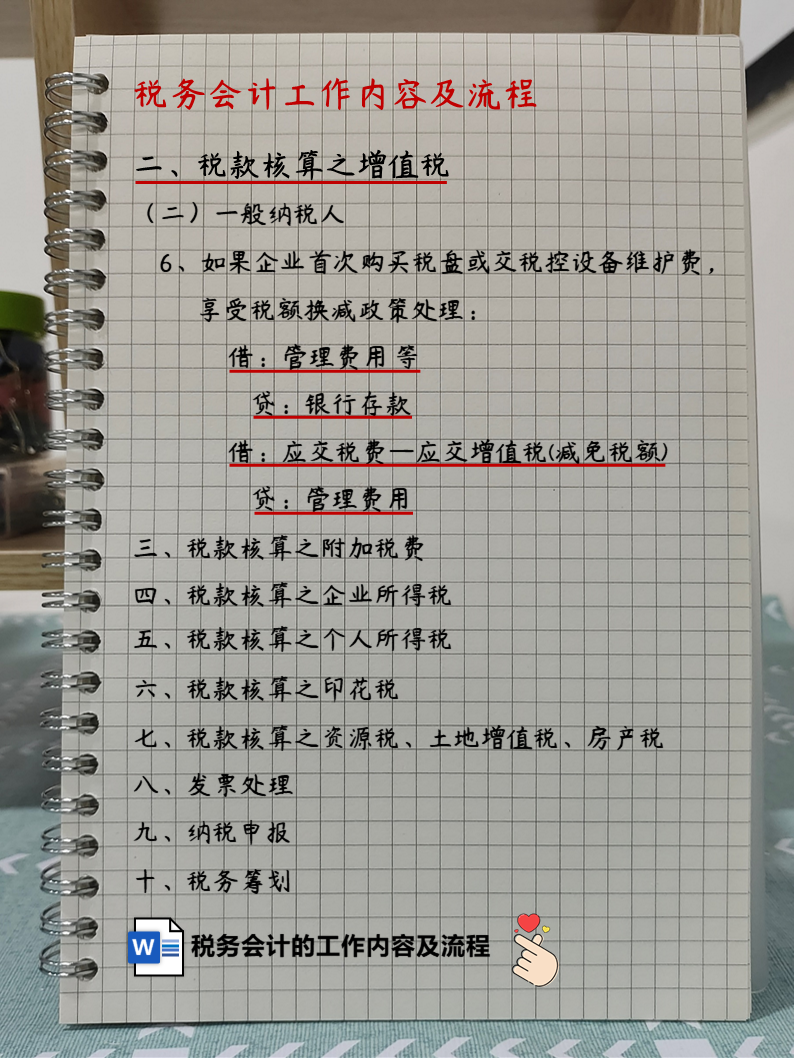 税务会计工作内容及流程
二、税款核算之增值税
（二）一般纳税人
6、如果企业首次购买税盘或交税控设备维护费，
享受税额换减政策处理：
借：管理费用等
贷：银行存款
借：应交税费—应交增值税(减免税额)
贷：管理费用
三、税款核算之附加税费
四、税款核算之企业所得税
五、税款核算之个人所得税
六、税款核算之印花税
七、税款核算之资源税、土地增值税、房产税
八、发票处理
九、纳税申报
十、税务筹划
W 税务会计的工作内容及流程